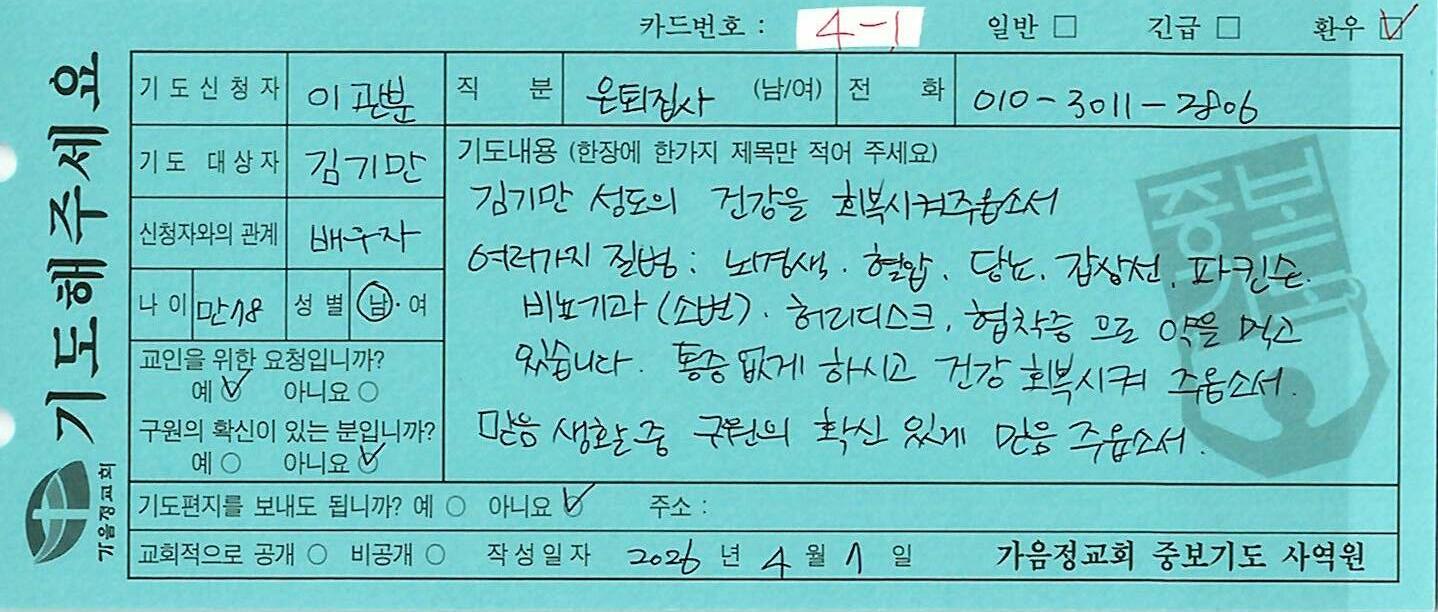 카드번호 : 4-1 일반 □ 긴급 □ 환우 ☑
기도해주세요
기도신청자 이관분 직 분 은퇴집사 (남/여) 전 화 010-3011-2806
기도 대상자 김기만 기도내용 (한장에 한가지 제목만 적어 주세요)
김기만 성도의 건강을 회복시켜주옵소서
신청자와의 관계 배우자
여러가지 질병: 뇌경색. 혈압. 당뇨. 갑상선. 파킨슨.
나 이 만78 성 별 남·여
비뇨기과(소변). 허리디스크. 협착증 으로 약을 먹고
교인을 위한 요청입니까?
있습니다. 통증없게 하시고 건강 회복시켜 주옵소서.
예 ○ 아니요 ○
구원의 확신이 있는 분입니까?
믿음 생활중 구원의 확신 있게 믿음 주옵소서.
예 ○ 아니요 ○
중보기도
기도편지를 보내도 됩니까? 예 ○ 아니요 ○ 주소 :
교회적으로 공개 ○ 비공개 ○ 작성일자 2026 년 4 월 1 일 가음정교회 중보기도 사역원
가음정교회